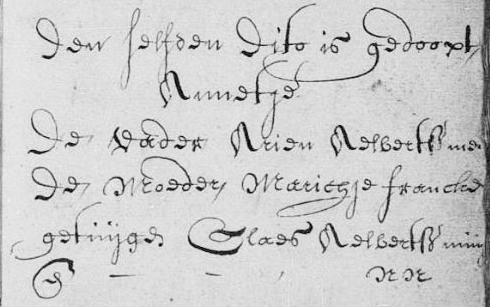 Den selfden dito is gedoopt
Annetje
De Vader Arien Aelbertss
De Moeder Maritgje francke
getuijge Claes Aelbertss